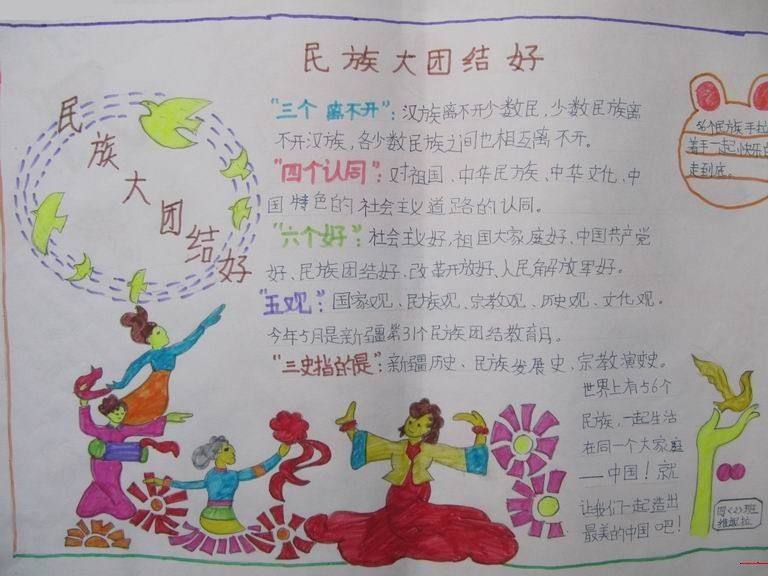 民族大团结好
民族大团结好
"三个离不开"：汉族离不开少数民，少数民族离
不开汉族，各少数民族之间也相互离不开。
"四个认同"：对祖国、中华民族、中华文化、中
国特色的社会主义道路的认同。
"六个好"：社会主义好，祖国大家庭好、中国共产党
好、民族团结好、改革开放好、人民解放军好。
"五观"：国家观、民族观、宗教观、历史观、文化观。
今年5月是新疆第31个民族团结教育月。
"三史指的是"：新疆历史、民族发展史、宗教演变史。
世界上有56个
民族，一起生活
在同一个大家庭
——中国！就
让我们一起造出
最美的中国吧！
56个民族手拉
着手一起快乐的
走到底。
四<2>班